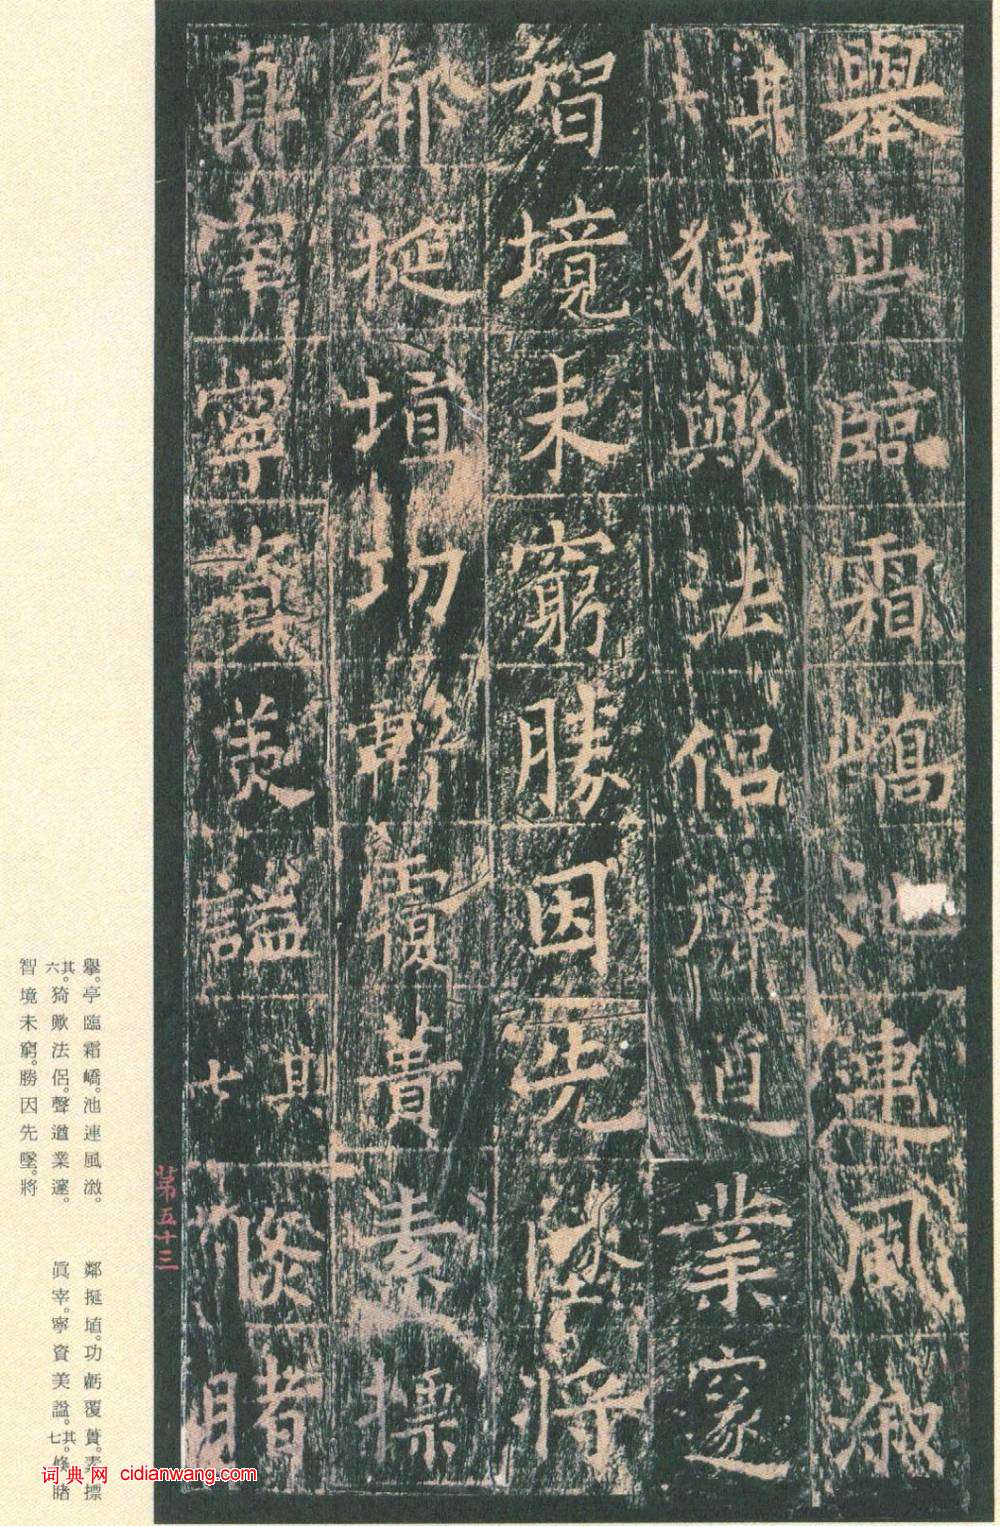 舉亭臨霜嶠池連風漵
其六猗歟法侶聲道業邃
智境未窮勝因先墜將
鄰挻埴功虧覆蕢素標
真宰寧資美諡其七倐睹
第五十三
舉。亭臨霜嶠。池連風漵。
其六。猗歟法侶。聲遒業邃。
智境未窮。勝因先墜。將
鄰挻埴。功虧覆蕢。素標
眞宰。寧資美諡。其七。倐睹
词典网 cidianwang.com